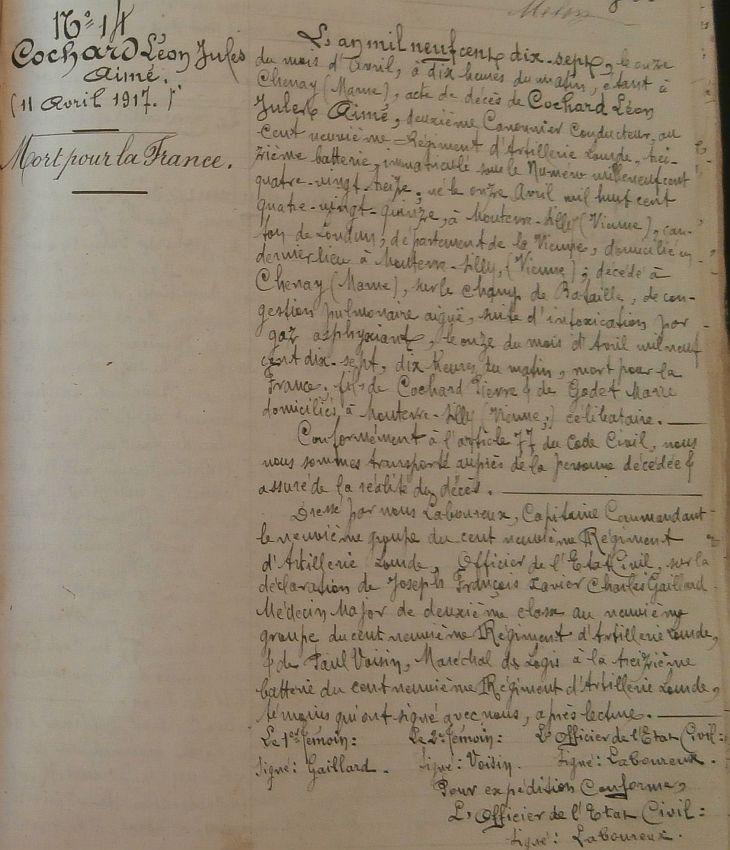 N° 14
Cochard Léon Jules
Aimé.
(11 Avril 1917.)
Mort pour la France.
L'an mil neuf cent dix-sept, le onze
du mois d'Avril, à dix heures du matin, étant à
Chenay (Marne), acte de décès de Cochard Léon
Jules Aimé, deuxième Canonnier Conducteur, au
cent neuvième Régiment d'Artillerie Lourde, trei-
zième batterie, immatriculé sous le Numéro mil neuf cent
quatre-vingt-treize, né le onze Avril mil huit cent
quatre-vingt-quinze, à Mouterre-Silly (Vienne), can-
ton de Loudun, département de la Vienne, domicilié en
dernier lieu à Mouterre-Silly, (Vienne), décédé à
Chenay (Marne), sur le Champ de Bataille, de con-
gestion pulmonaire aiguë, suite d'intoxication par
gaz asphyxiant, le onze du mois d'Avril mil neuf
cent dix-sept, dix heures du matin, mort pour la
France, fils de Cochard Pierre & de Godet Marie
domiciliés à Mouterre-Silly (Vienne,) célibataire.
Conformément à l'article 77 du Code Civil, nous
nous sommes transporté auprès de la personne décédée &
assuré de la réalité du décès.
Dressé par nous Laboureux, Capitaine Commandant
le neuvième groupe du cent neuvième Régiment
d'Artillerie Lourde, Officier de l'Etat Civil, sur la
déclaration de Joseph François Xavier Charles Gaillard
Médecin Major de deuxième classe au neuvième
groupe du cent neuvième Régiment d'Artillerie Lourde,
& de Paul Voisin, Maréchal des Logis à la treizième
batterie du cent neuvième Régiment d'Artillerie Lourde,
témoins qui ont signé avec nous, après lecture.
Le 1er Témoin: Le 2e Témoin: L'Officier de l'Etat Civil:
Signé: Gaillard. Signé: Voisin. Signé: Laboureux.
Pour expédition Conforme,
L'Officier de l'Etat Civil:
Signé: Laboureux.